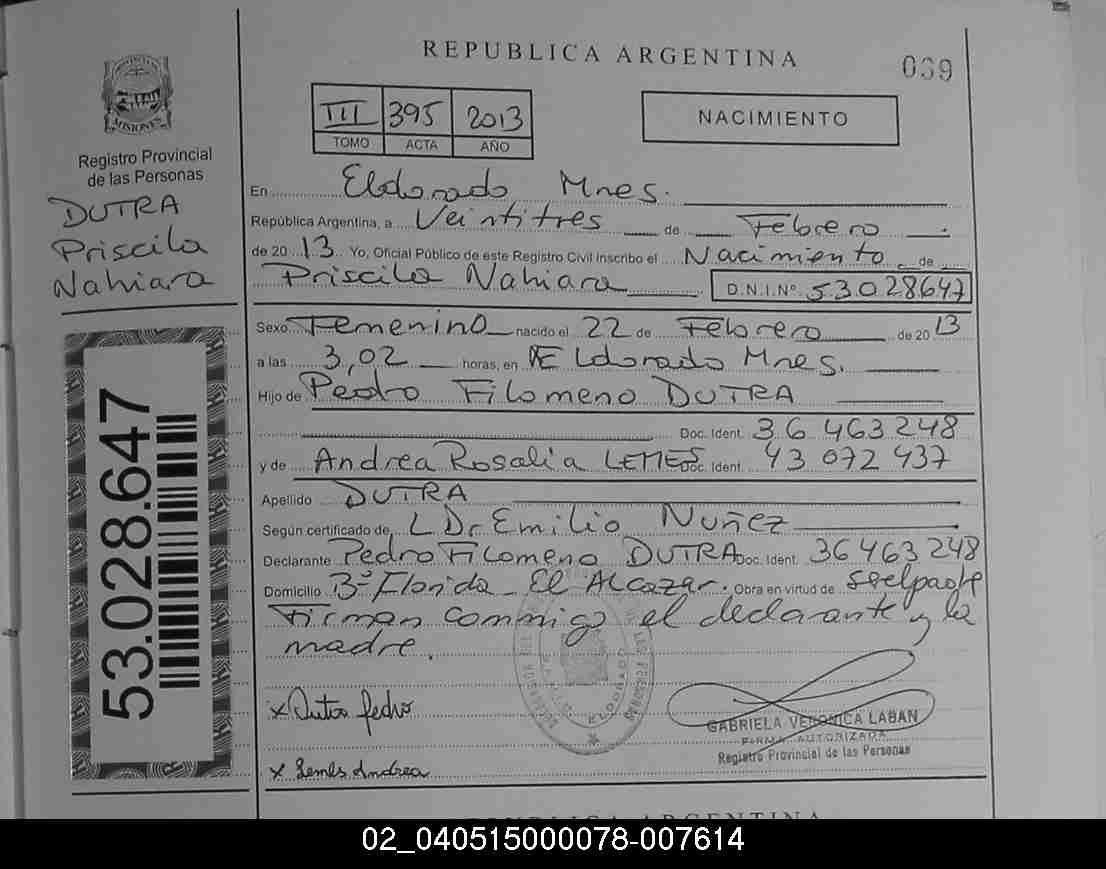 REPUBLICA ARGENTINA
069
MISIONES
Registro Provincial
de las Personas
DUTRA
Priscila
Nahiara
53.028.647
III 395 2013
TOMO ACTA AÑO
NACIMIENTO
En Eldorado Mnes.
República Argentina, a Veintitres de Febrero
de 20 13 Yo, Oficial Público de este Registro Civil inscribo el Nacimiento de
Priscila Nahiara D.N.I.Nº 53028647
Sexo Femenino nacido el 22 de Febrero de 20 13
a las 3,02 horas, en Eldorado Mnes.
Hijo de Pedro Filomeno DUTRA
Doc. Ident. 36 463 248
y de Andrea Rosalia LEMES Doc. Ident. 43 072 437
Apellido DUTRA
Según certificado de Dr Emilio Nuñez
Declarante Pedro Filomeno DUTRA Doc. Ident. 36463248
Domicilio Bº Florida - El Alcazar. Obra en virtud de
Firman conmigo el declarante y la
madre.
x Dutra Pedro
ELDORADO
GABRIELA VERONICA LABAN
FIRMA AUTORIZADA
Registro Provincial de las Personas
x Lemes Andrea
REPUBLICA ARGENTINA
02_040515000078-007614